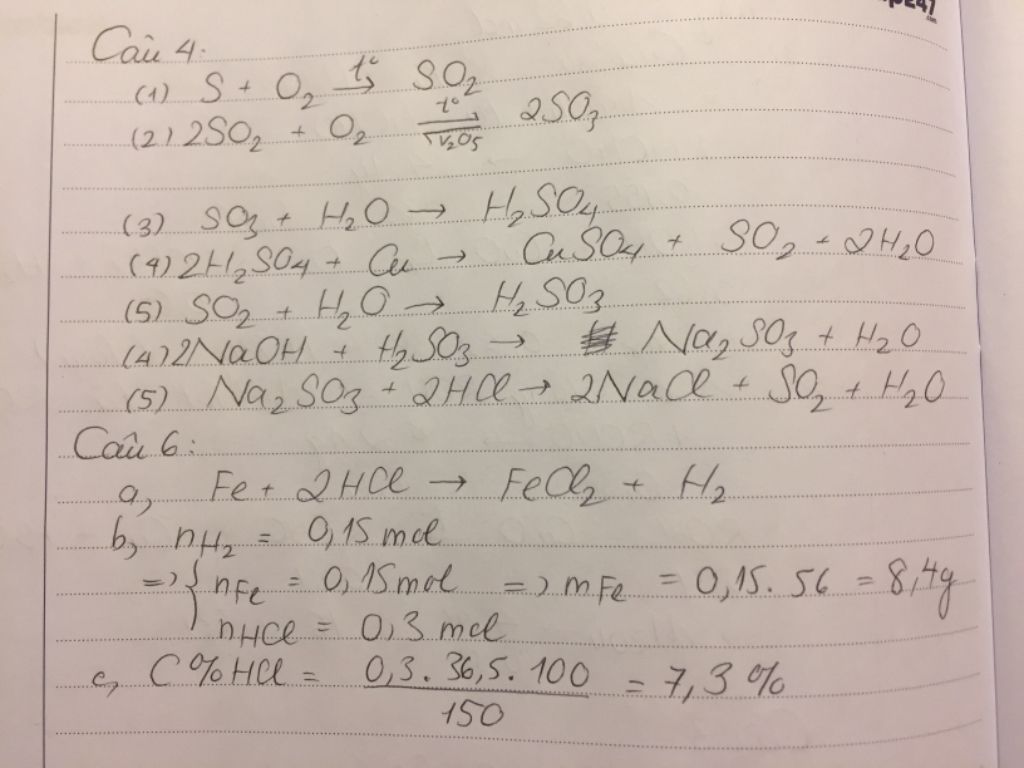 Câu 4:
(1) S + O₂ →(t°) SO₂
(2) 2SO₂ + O₂ ⇌(t°, V₂O₅) 2SO₃
(3) SO₃ + H₂O → H₂SO₄
(4) 2H₂SO₄ + Cu → CuSO₄ + SO₂ + 2H₂O
(5) SO₂ + H₂O → H₂SO₃
(4) 2NaOH + H₂SO₃ → Na₂SO₃ + H₂O
(5) Na₂SO₃ + 2HCl → 2NaCl + SO₂ + H₂O
Câu 6:
a, Fe + 2HCl → FeCl₂ + H₂
b, nH₂ = 0,15 mol
=> { nFe = 0,15 mol => mFe = 0,15 . 56 = 8,4g
nHCl = 0,3 mol
c, C%HCl = 0,3 . 36,5 . 100 / 150 = 7,3 %